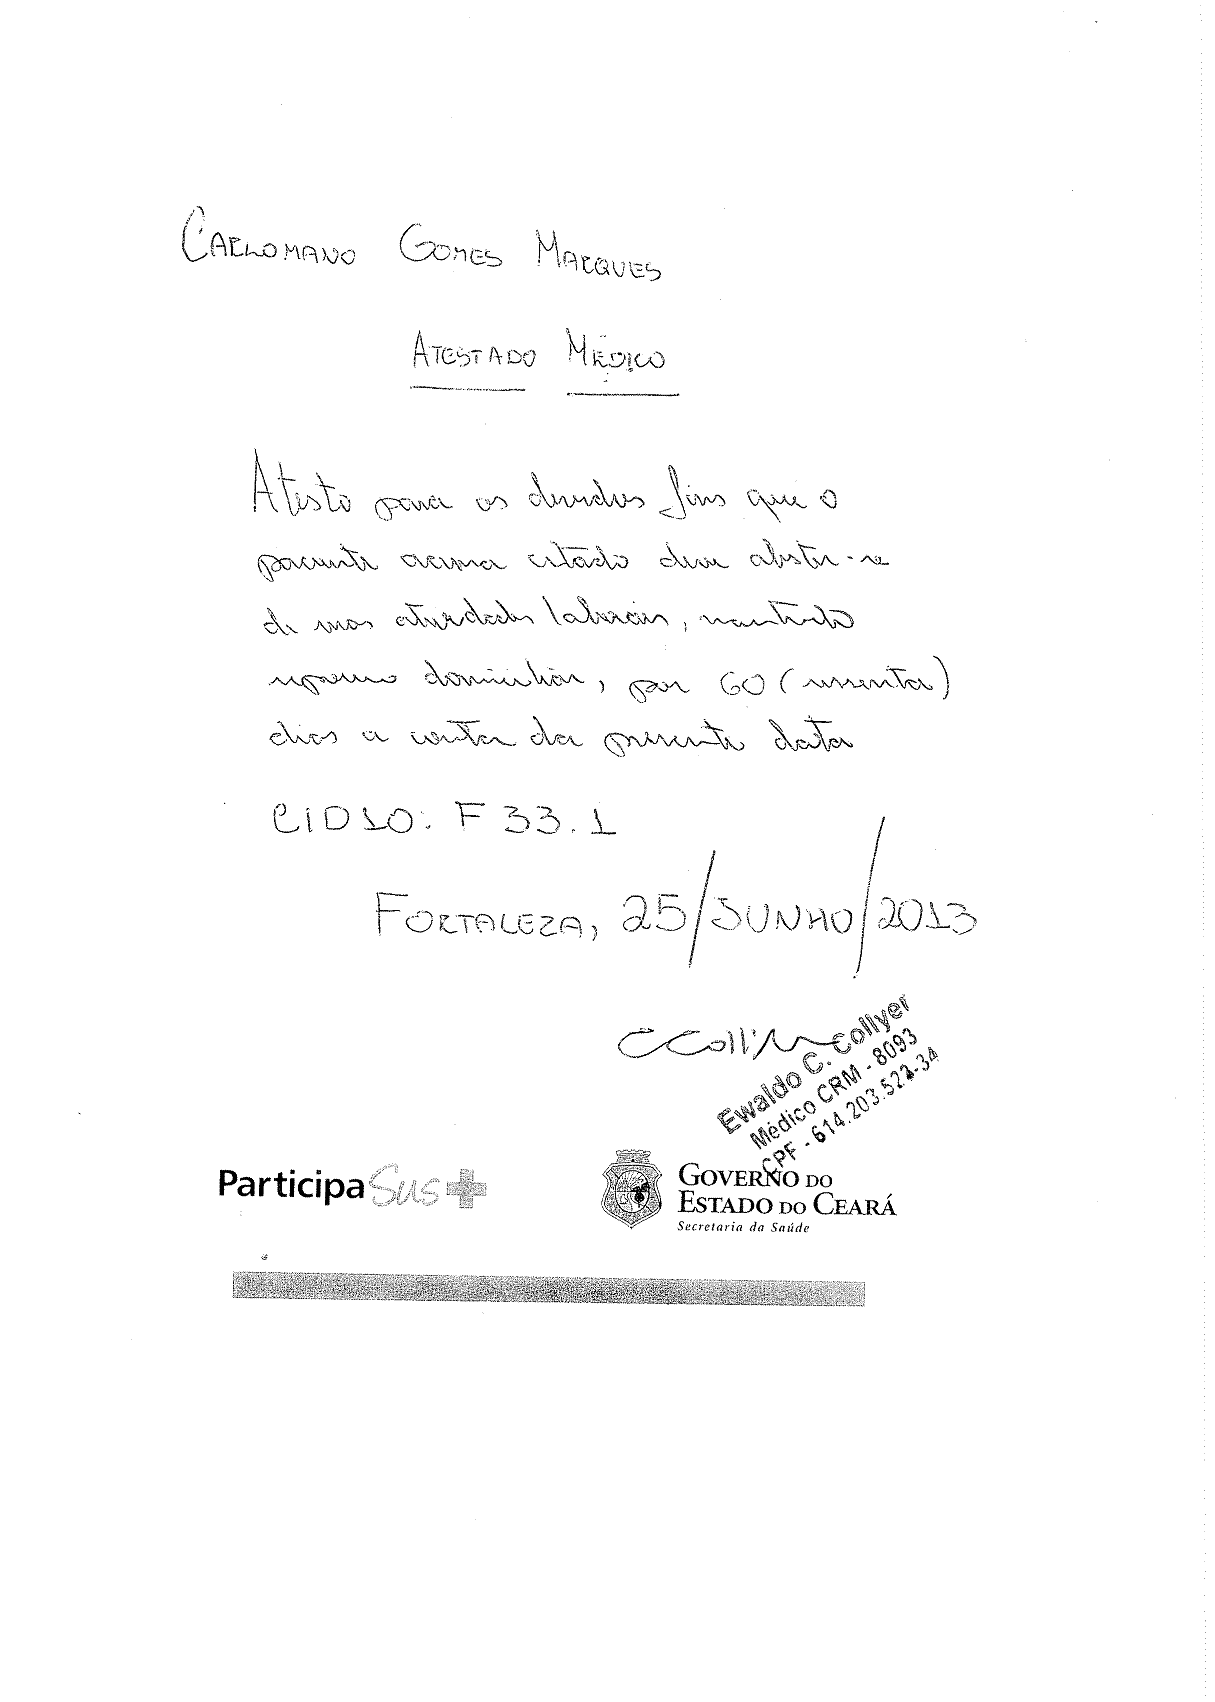 Carlomano Gomes Marques
Atestado Médico
Atesto para os devidos fins que o
paciente acima citado deve abster-se
de suas atividades laborais, mantendo
repouso domiciliar, por 60 (sessenta)
dias a contar da presente data
CID10: F 33.1
Fortaleza, 25/Junho/2013
Ewaldo C. Collyer
Médico CRM - 8093
CPF - 614.203.522-34
ParticipaSUS+
Governo do
Estado do Ceará
Secretaria da Saúde